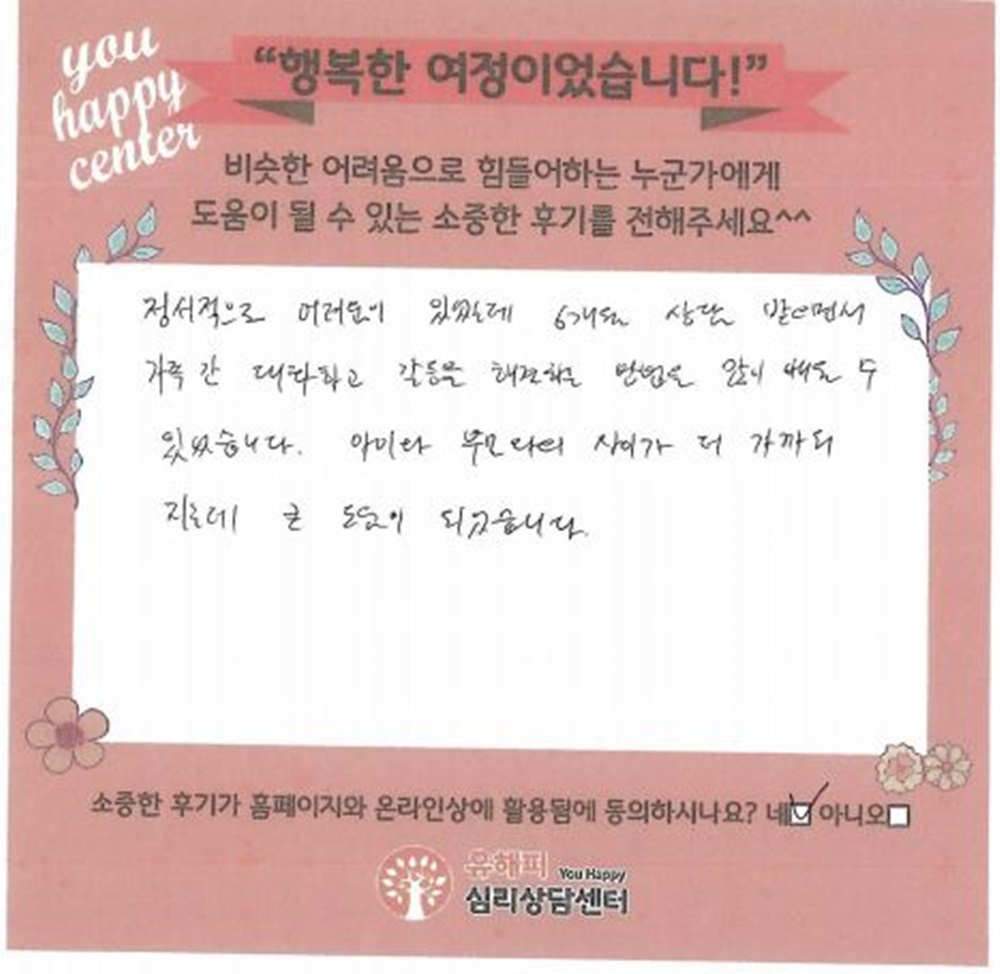 you
happy
center
“행복한 여정이었습니다!”
비슷한 어려움으로 힘들어하는 누군가에게
도움이 될 수 있는 소중한 후기를 전해주세요^^
정서적으로 어려움이 있었는데 6개월 상담 받으면서
가족 간 대화하고 갈등을 해결하는 방법을 많이 배울 수
있었습니다. 아이와 부모와의 사이가 더 가까워
지는데 큰 도움이 되었습니다.
소중한 후기가 홈페이지와 온라인상에 활용됨에 동의하시나요? 네☑ 아니오☐
유해피 You Happy
심리상담센터